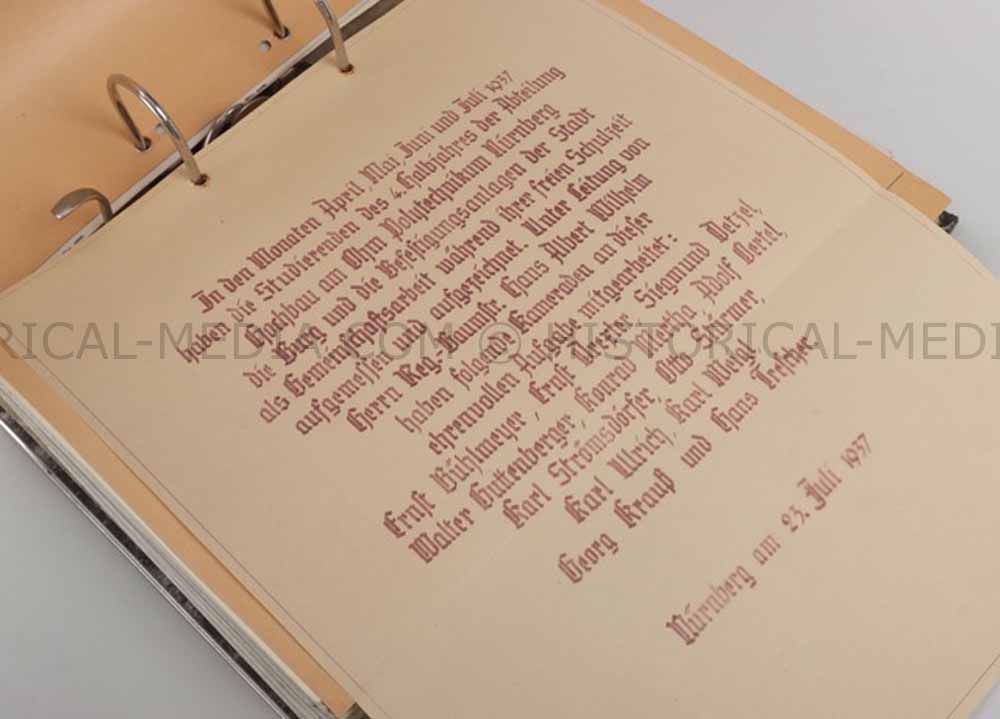 In den Monaten April, Mai, Juni und Juli 1937
haben die Studierenden des 4. Halbjahres der Abteilung
Hochbau am Ohm Polytechnikum Nürnberg
die Burg und die Befestigungsanlagen der Stadt
als Gemeinschaftsarbeit während ihrer freien Schulzeit
aufgemessen und aufgezeichnet. Unter Leitung von
Herrn Reg. Baumstr. Hans Albert Wilhelm
haben folgende Kameraden an dieser
ehrenvollen Aufgabe mitgearbeitet:
Ernst Bühlmeyer, Ernst Siegmund Detzel,
Walter Guttenberger, Konrad Adolf Oertel,
Karl Strömsdörfer, Otto
Karl Ulrich, Karl
Georg Krauß und Hans
Nürnberg am 23. Juli 1937
RICAL-MEDIA.COM © HISTORICAL-MEDI